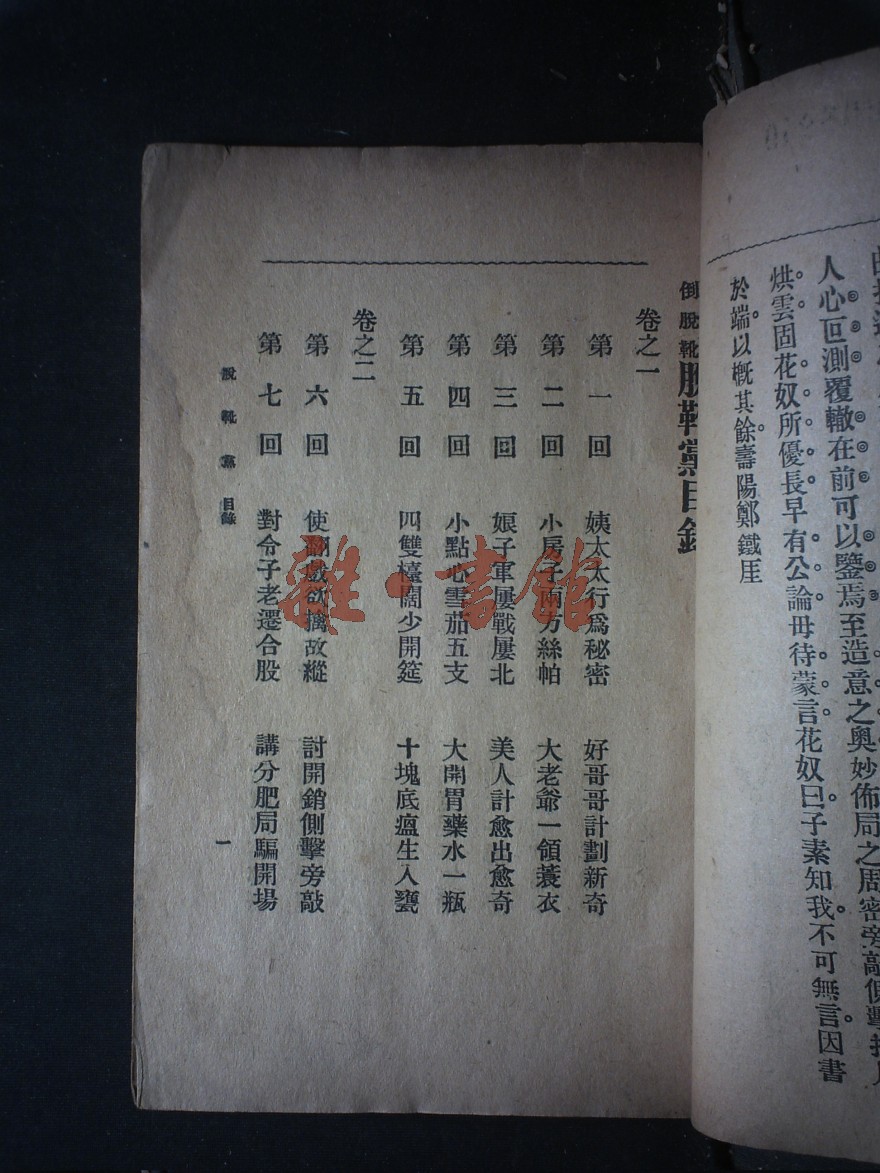 人心叵測覆轍在前可以鑒焉至造意之奧妙佈局之周密旁敲側擊
烘雲固花奴所優長早有公論毋待蒙言花奴曰子素知我不可無言因書
於端以概其餘壽陽鄭鐵厓
倒脫靴脫靴黨目錄
卷之一
第一回 姨太太行爲秘密 好哥哥計劃新奇
第二回 小房子兩方絲帕 大老爺一領蓑衣
第三回 娘子軍屢戰屢北 美人計愈出愈奇
第四回 小點心雪茄五支 大開胃藥水一瓶
第五回 四雙檯闊少開筵 十塊底瘟生入甕
卷之二
第六回 使翻戲欲擒故縱 討開銷側擊旁敲
第七回 對令子老遷合股 講分肥局騙開場
脫靴黨 目錄
一
雜·書館